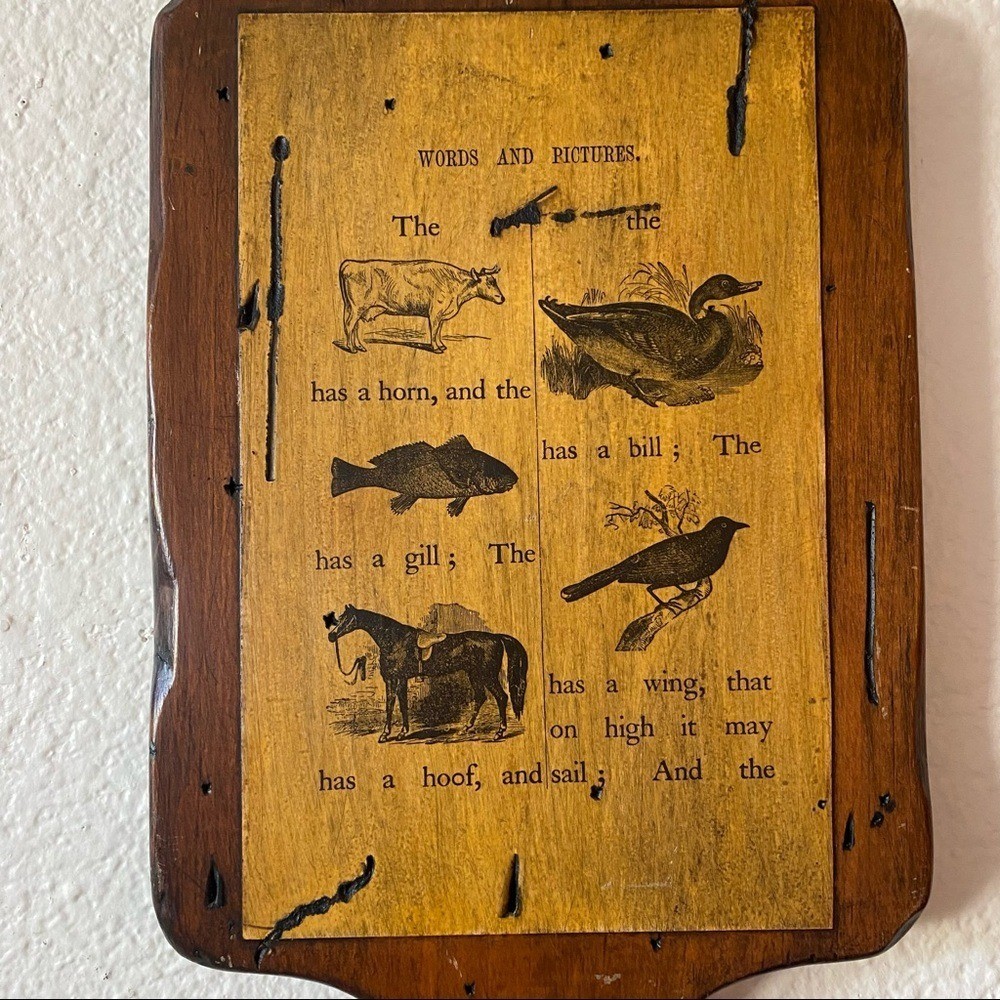 WORDS AND PICTURES.
The
has a horn, and the
has a gill; The
has a hoof, and
the
has a bill; The
has a wing, that
on high it may
sail; And the